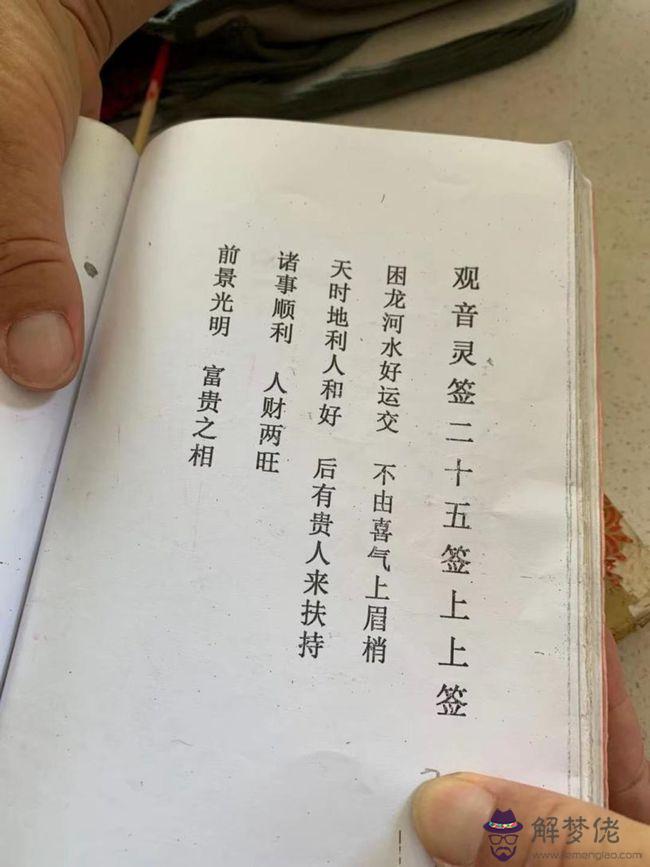 观音灵签二十五签上上签
困龙河水好运交 不由喜气上眉梢
天时地利人和好 后有贵人来扶持
诸事顺利 人财两旺
前景光明 富贵之相
解梦佬
www.jiemenglao.com